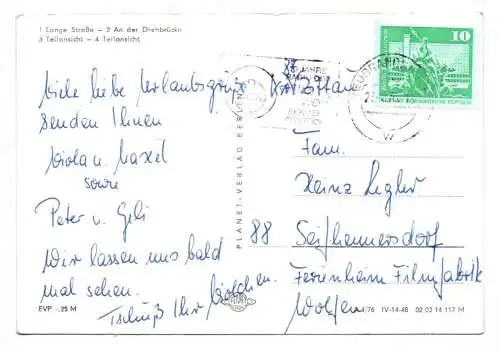 1 Lange Straße – 2 An der Drehbrücke
3 Teilansicht – 4 Teilansicht
10
Viele liebe Urlaubsgrüße
senden Ihnen
Viola u. Maxel
sowie
Peter u. Geli
Wir lassen uns bald
mal sehen.
Tschüß Ihr Violchen.
EVP -,25 M
PLANET-VERLAG BERLIN
Fam.
Heinz Legler
88 Seifhennersdorf
Ferienheim Filmfabrik
Wolfen
4/76 IV-14-48 02 03 14 117 M